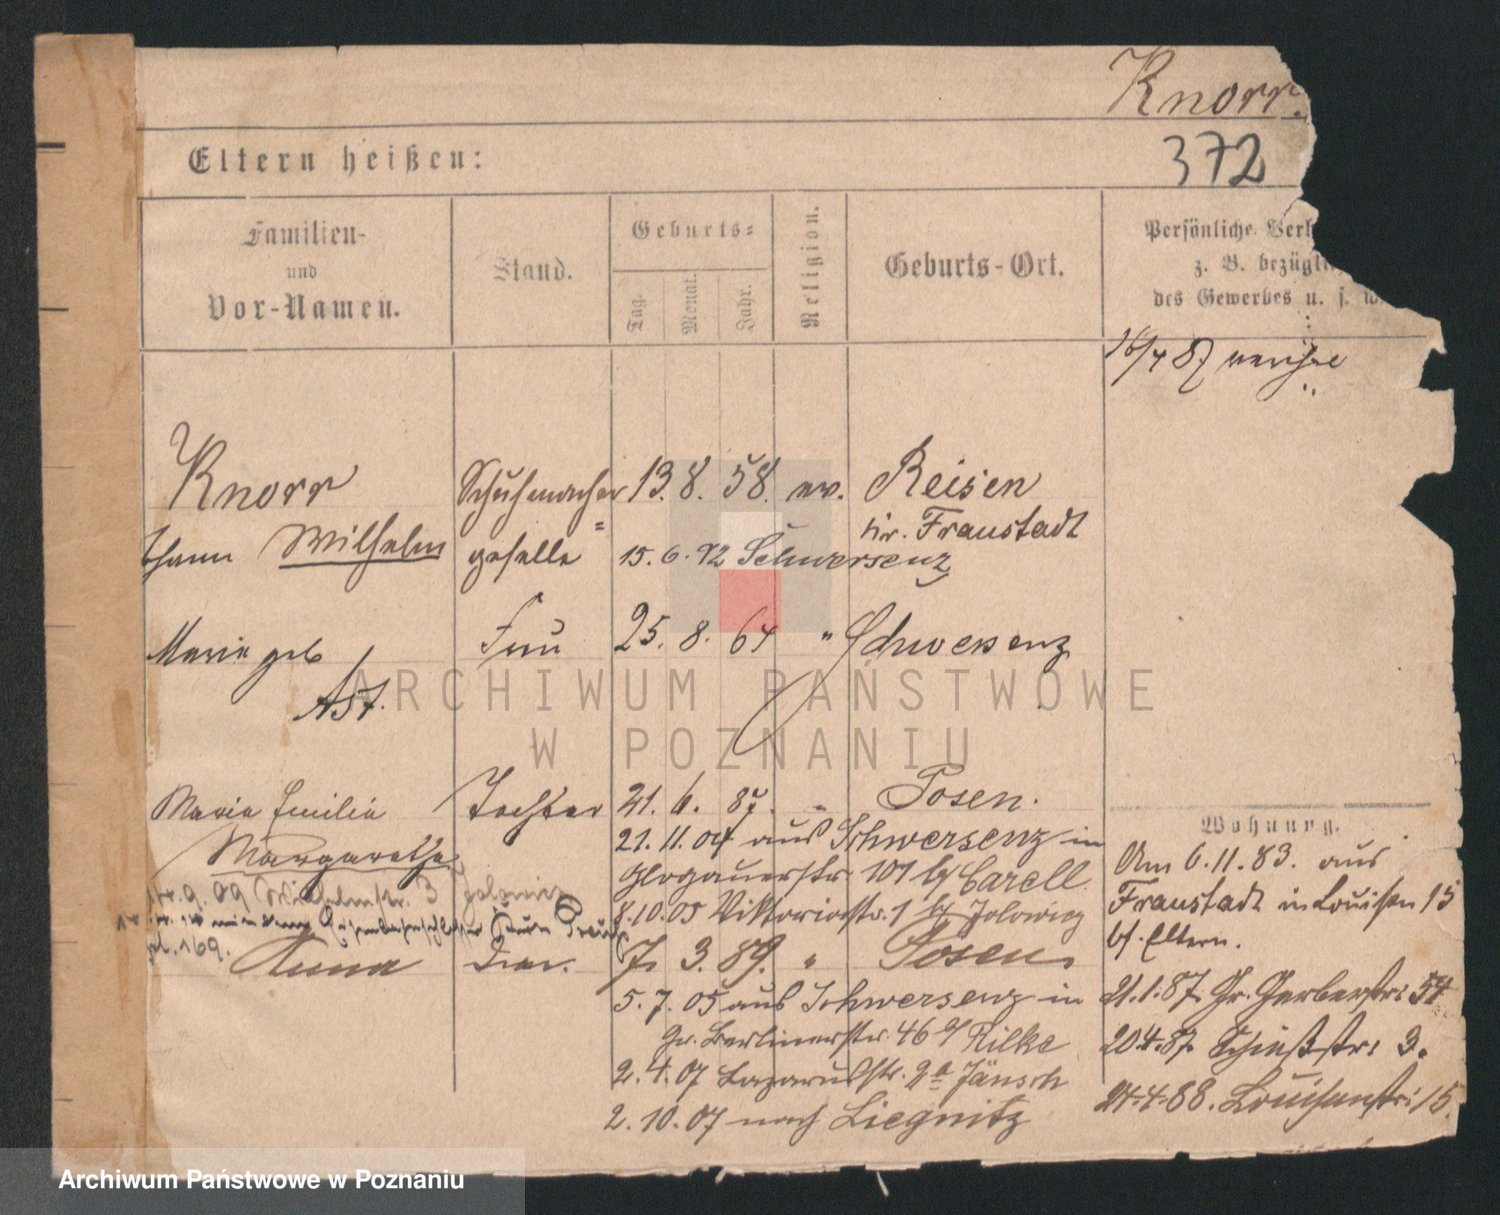 Knorr.
372
Eltern heißen:
Familien-
und
Vor-Namen.
Stand.
Geburts-
Tag.
Monat.
Jahr.
Religion.
Geburts-Ort.
Persönliche Verh
z. B. bezügli
des Gewerbes u. s. w
16/4 87
Knorr Schuhmacher 13. 8. 58. ev. Reisen
Kr. Fraustadt
Wilhelm geselle 15. 6. 92 Schwersenz
Marie geb Frau 25. 8. 64 " Schwersenz
Ast.
Marie Emilie Tochter 21. 6. 87. " Posen.
Margarethe
21. 11. 04 aus Schwersenz in
Glogauerstr. 101 bei Carell.
9. 09 Wilhelmstr. 3 Jolowicz
8. 10. 05 Viktoriastr. 1 bei Jolowicz
Anna 7. 3. 89. " Posen
5. 7. 05 aus Schwersenz in
Gr. Berlinerstr. 46 bei Rilke
2. 4. 07 Lazarusstr. 2a Jänsch
2. 10. 07 nach Liegnitz
Wohnung.
Am 6. 11. 83. aus
Fraustadt in Louisen 15
bei Eltern.
21. 1. 87. Gr. Gerberstr: 54
20. 4. 87. Schießstr: 3.
24. 4. 88. Louisenstr: 15.
ARCHIWUM PAŃSTWOWE
W POZNANIU
Archiwum Państwowe w Poznaniu